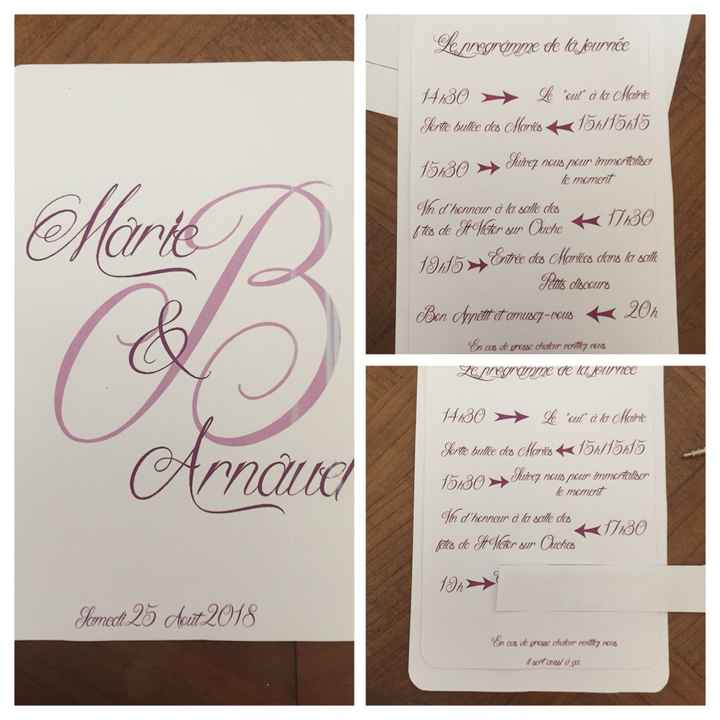 Mârie
B
&
Arnâud
Samedi 25 Août 2018
Le progrâmme de lâ journée
14h30 Le "oui" à la Mairie
Sortie bullée des Mariés 15h/15h15
15h30 Suivez nous pour immortaliser
le moment
Vin d'honneur à la salle des
f tes de St Victor sur Ouche 17h30
19h15 Entrée des Mariées dans la salle
Petits discours
Bon Appétit et amusez-vous 20h
En cas de grosse chaleur ventillez nous
Le progrâmme de lâ journée
14h30 Le "oui" à la Mairie
Sortie bullée des Mariés 15h/15h15
15h30 Suivez nous pour immortaliser
le moment
Vin d'honneur à la salle des
fêtes de St Victor sur Ouches 17h30
19h
En cas de grosse chaleur ventillez nous
il sert aussi à ça.